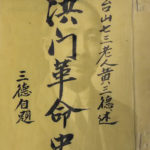 台山七三老人黃三德述
洪门革命史
三德自題